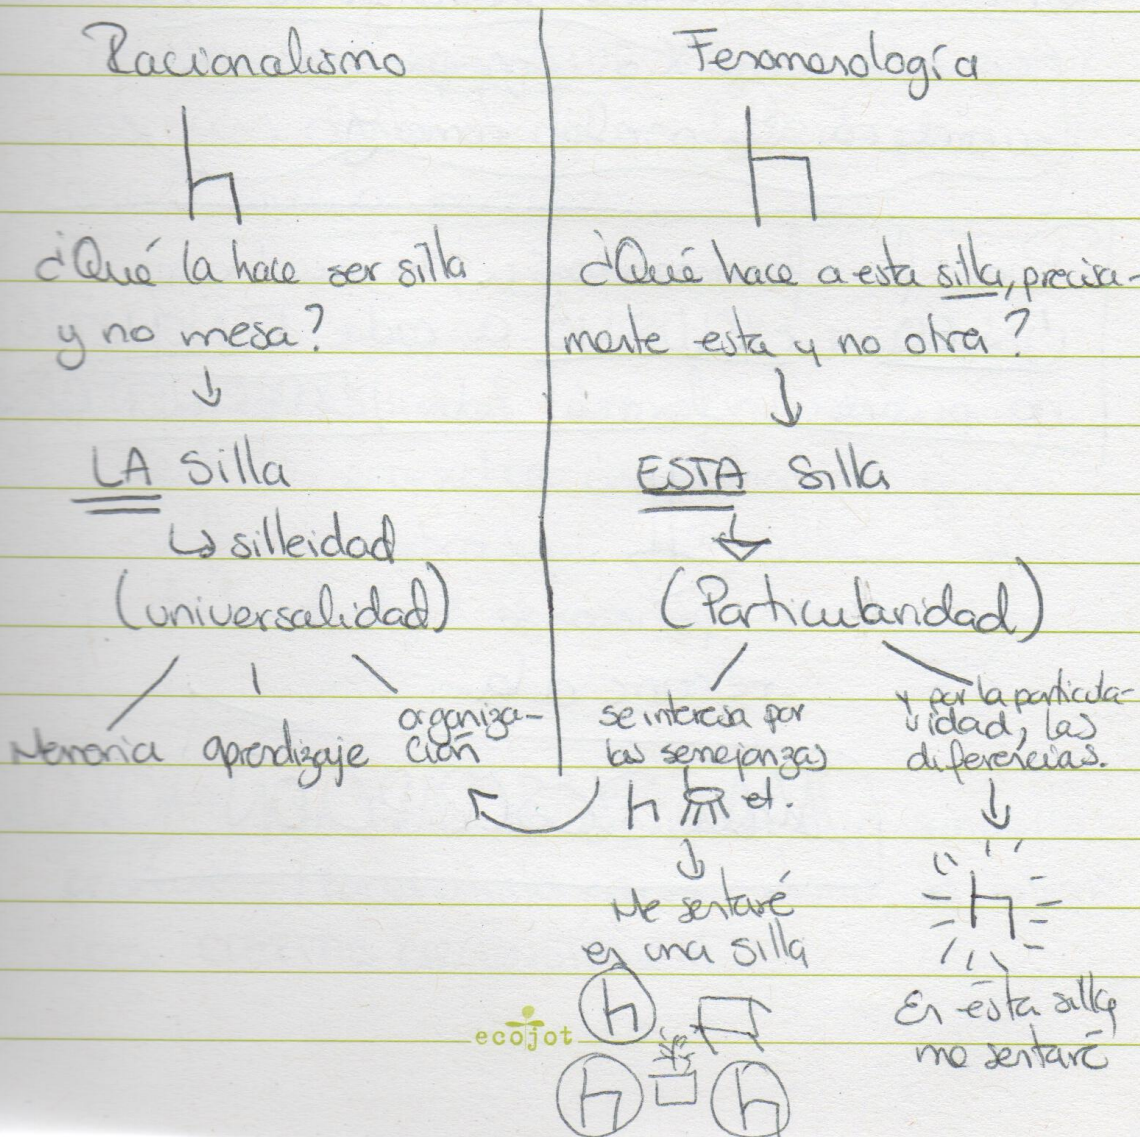 Racionalismo
¿Qué la hace ser silla
y no mesa?
LA silla
silleidad
(universalidad)
Memoria aprendizaje organiza-
ción
Fenomenología
¿Qué hace a esta silla, precisa-
mente esta y no otra?
ESTA silla
(Particularidad)
se interesa por
las semejanzas
et.
Me sentaré
en una silla
y por la particula-
ridad, las
diferencias.
En ésta silla,
me sentaré
ecojot